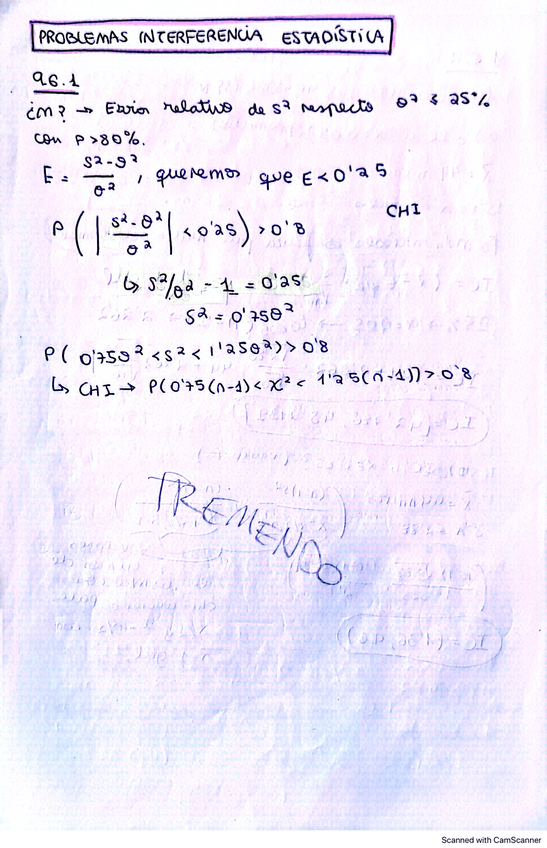 PROBLEMAS INTERFERENCIA ESTADÍSTICA
96.1
¿n? → Error relativo de s² respecto σ² ≤ 25%
con P>80%.
E = (s²-σ²)/σ², queremos que E<0'25
CHI
P(|(s²-σ²)/σ²| <0'25) >0'8
↳ s²/σ² - 1 = 0'25
s² = 0'75σ²
P( 0'75σ² < s² < 1'25σ²) > 0'8
↳ CHI → P(0'75(n-1) < χ² < 1'25(n-1)) > 0'8
TREMENDO
Scanned with CamScanner